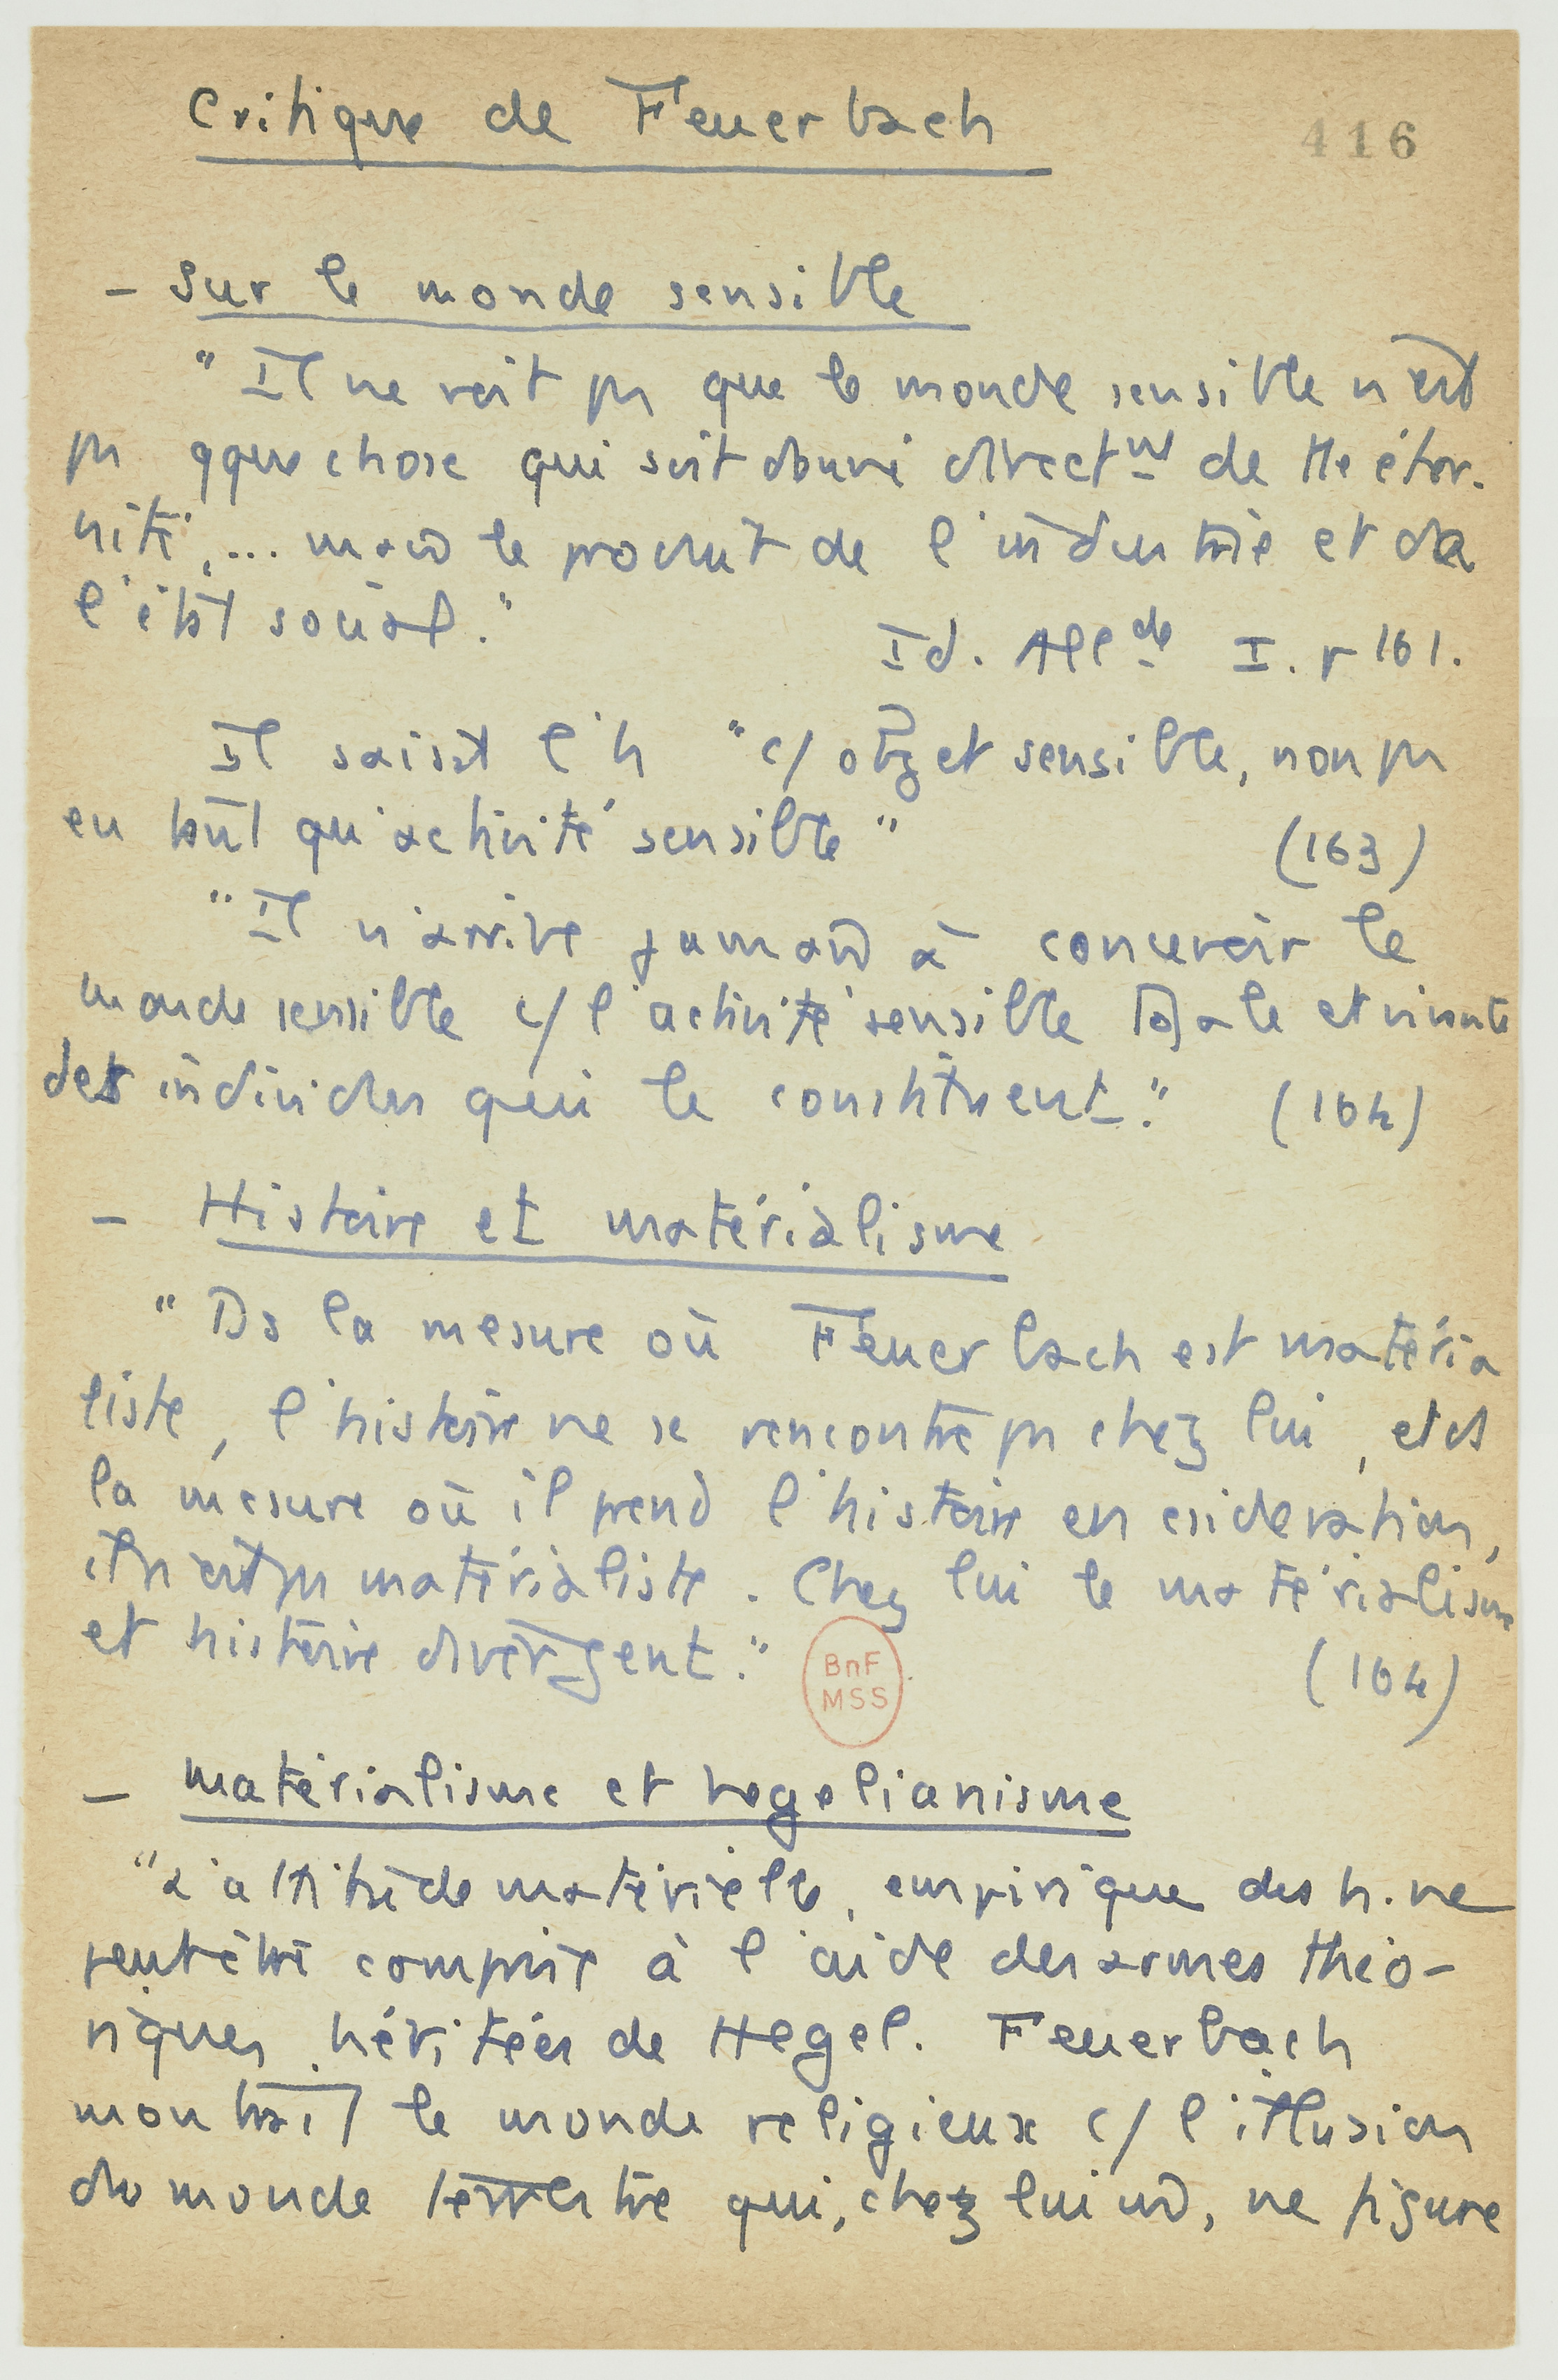 Critique de Feuerbach
416
- Sur le monde sensible
"Il ne voit pas que le monde sensible n'est
pas qque chose qui soit donné direct^mt de tte éter-
nité, ... mais le produit de l'industrie et de
l'état social."
Id. All^de I. p 161.
Il saisit l'h "c/ objet sensible, non pas
en tant qu'activité sensible"
(163)
"Il n'arrive jamais à concevoir le
monde sensible c/ l'activité sensible totale et vivante
des individus qui le constituent." (164)
- Histoire et matérialisme
"Ds la mesure où Feuerbach est matéria
liste, l'histoire ne se rencontre pas chez lui, et ds
la mesure où il prend l'histoire en csideration,
il n'est pas matérialiste. Chez lui le matérialisme
et histoire divergent."
(164)
BnF
MSS
- matérialisme et hegelianisme
"L'attitude matérielle, empirique des h. ne
peut être comprise à l'aide des armes théo-
riques héritées de Hegel. Feuerbach
montrait le monde religieux c/ l'illusion
du monde terrestre qui, chez lui ud, ne figure